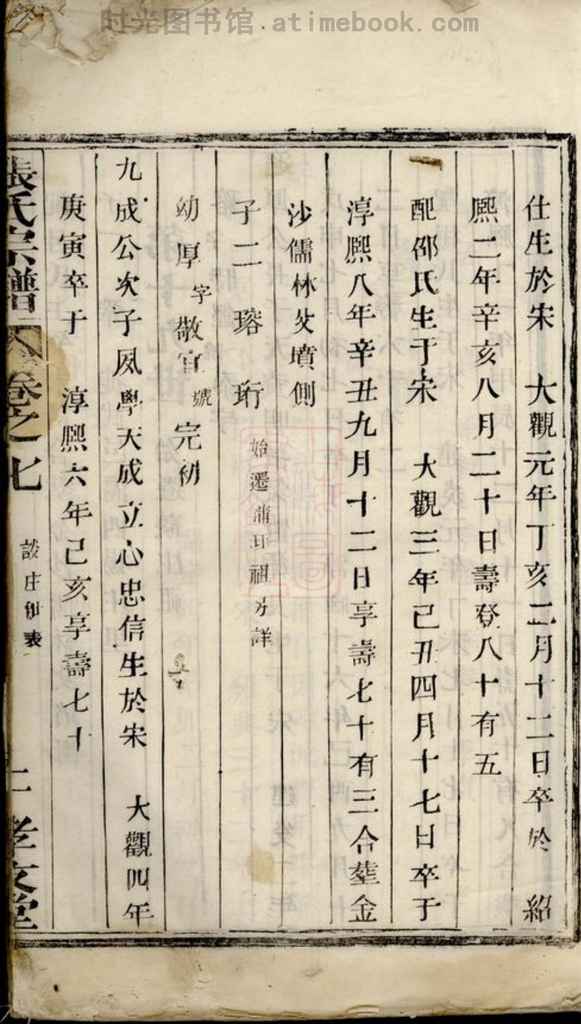 时光图书馆.atimebook.com
仕生於宋 大觀元年丁亥二月十二日卒於 紹
熙二年辛亥八月二十日壽登八十有五
配邵氏生于宋 大觀三年己丑四月十七日卒于
淳熙八年辛丑九月十二日享壽七十有三合塟金
沙儒林父墳側
子二 瑢 珩 始遷蒲圻祖另詳
幼厚字敬宜號完初
九成公次子夙學天成立心忠信生於宋 大觀四年
庚寅卒于 淳熙六年己亥享壽七十
張氏宗譜 卷之七 談庄伊表 孝友堂